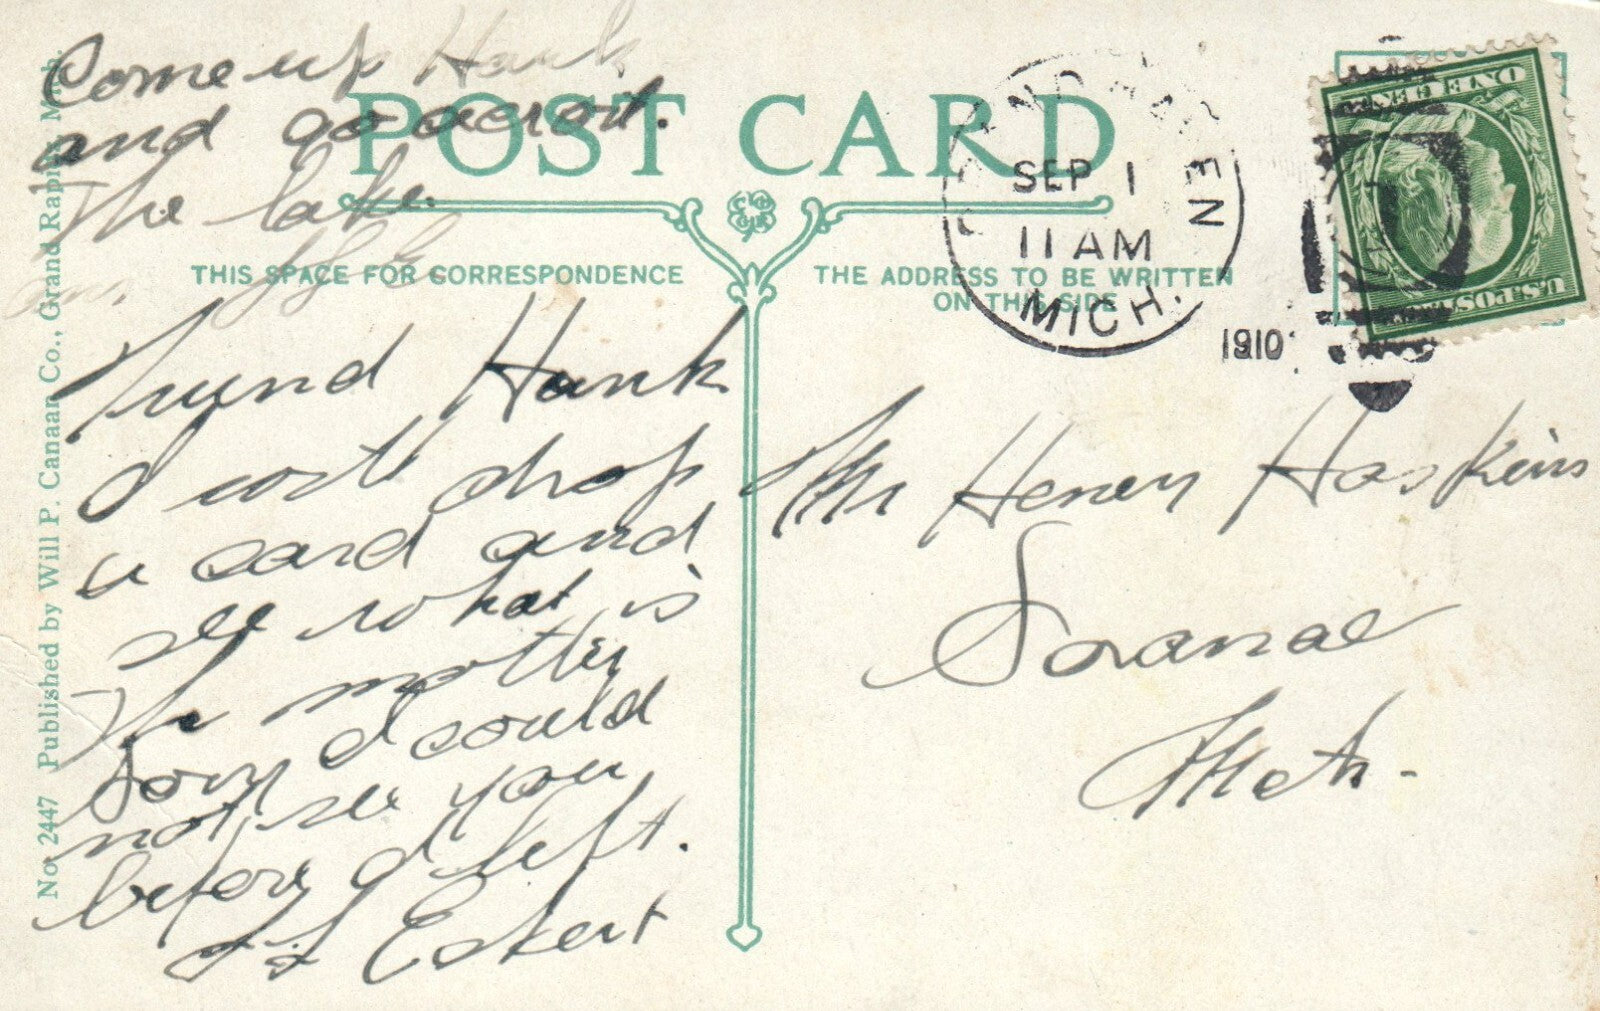 Come up Hank
and go acrost.
The lake.
POST CARD
THIS SPACE FOR CORRESPONDENCE
THE ADDRESS TO BE WRITTEN
ON THIS SIDE
GRAND HAVEN
SEP 1
11 AM
MICH.
1910
ONE CENT
U.S. POSTAGE
Friend Hank
I will drop
a card and
see what is
The matter
Sory I could
not see you
before I left.
Eckert
Mr Henry Haskins
Saranac
Mich.
No 2447 Published by Will P. Canaan Co., Grand Rapids, Mich.